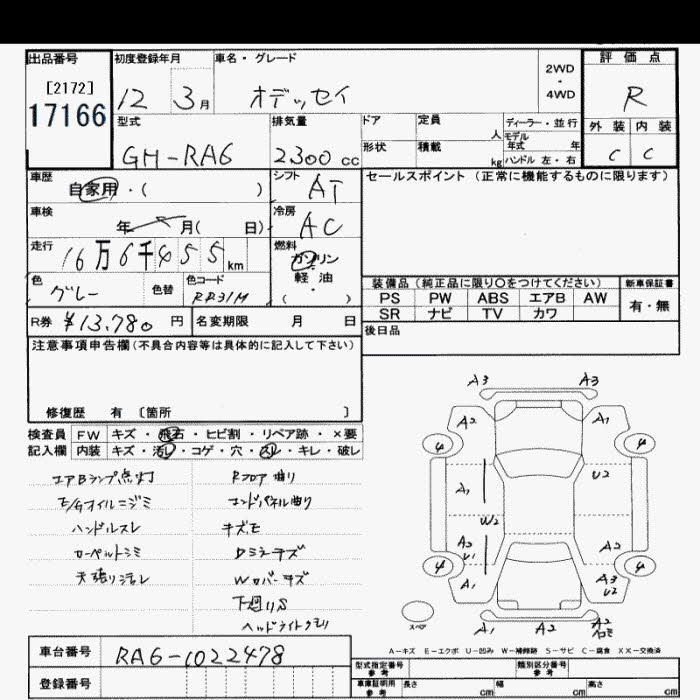 出品番号
[2172]
17166
初度登録年月
12 3月
車名・グレード
オデッセイ
2WD
・
4WD
評価点
R
外装 内装
C C
型式
GH-RA6
排気量
2300 cc
ドア
定員
人
形状
積載
kg
ディーラー・並行
モデル
年式 年
ハンドル 左・右
車歴
自家用・( )
シフト
AT
車検
年 月( 日)
冷房
AC
走行
16万6千455km
燃料
ガソリン
軽・油
( )
色
グレー
色替
色コード
RR31M
R券 ¥13,780円
名変期限 月 日
セールスポイント(正常に機能するものに限ります)
装備品(純正品に限り○をつけてください)
新車保証書
PS PW ABS エアB AW
SR ナビ TV カワ
有・無
後日品
注意事項申告欄(不具合内容等は具体的に記入して下さい)
修復歴 有 〔箇所 〕
検査員 FW キズ・飛石・ヒビ割・リペア跡・×要
記入欄 内装 キズ・汚レ・コゲ・穴・スレ・キレ・破レ
エアBランプ点灯
E/Gオイルニジミ
ハンドルスレ
カーペットシミ
天張り汚レ
Rフロア曲り
エンドパネル曲り
キズ、E
Dミラーキズ
Wカバーキズ
下廻りS
ヘッドライトクモリ
A3 A3
A2 A1
4 4
A1 U2
W2
A2 U1 A2
4 4
A1 A3 U2
スペア
A1 A2 A2
A-キズ E-エクボ U-凹み W-補修跡 S-サビ C-腐食 XX-交換済
車台番号 RA6-1022478
登録番号
型式指定番号
参考
類別区分番号
参考
車庫証明用
参考
長さ cm 幅 cm 高さ cm